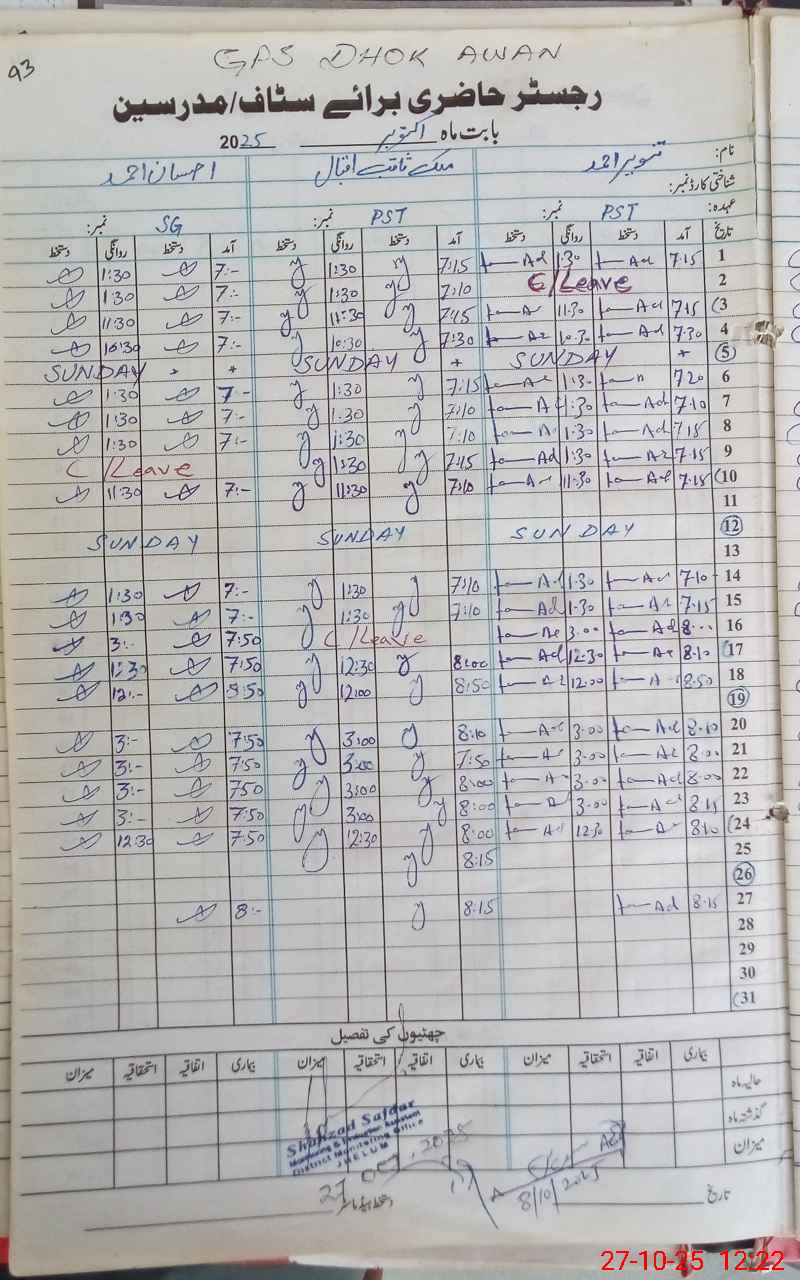 93
GPS DHOK AWAN
رجسٹر حاضری برائے سٹاف/مدرسین
بابت ماہ اکتوبر 2025
نام: تنویر احمد ملک ثاقب اقبال احسان احمد
شناختی کارڈ نمبر:
عہدہ: PST نمبر: PST نمبر: SG نمبر:
تاریخ آمد دستخط روانگی دستخط آمد دستخط روانگی دستخط آمد دستخط روانگی دستخط
1 7:15 1:30 7:15 1:30 7:- 1:30
2 C/Leave 7:10 1:30 7:- 1:30
3 7:15 11:30 7:15 11:30 7:- 11:30
4 7:30 10:30 7:30 10:30 7:- 10:30
5 SUNDAY SUNDAY SUNDAY
6 7:20 1:30 7:15 1:30 7:- 1:30
7 7:10 1:30 7:10 1:30 7:- 1:30
8 7:15 1:30 7:10 1:30 7:- 1:30
9 7:15 1:30 7:15 1:30 C/Leave
10 7:15 11:30 7:10 11:30 7:- 11:30
11
12 SUNDAY SUNDAY SUNDAY
13
14 7:10 1:30 7:10 1:30 7:- 1:30
15 7:15 1:30 7:10 1:30 7:- 1:30
16 8:00 3:00 C/Leave 7:50 3:-
17 8:10 12:30 8:00 12:30 7:50 12:30
18 8:50 12:00 8:50 12:00 8:50 12:-
19
20 8:10 3:00 8:10 3:00 7:50 3:-
21 8:00 3:00 7:50 3:00 7:50 3:-
22 8:00 3:00 8:00 3:00 750 3:-
23 8:15 3:00 8:00 3:00 7:50 3:-
24 8:10 12:30 8:00 12:30 7:50 12:30
25 8:15
26
27 8:15 8:15 8:-
28
29
30
31
چھٹیوں کی تفصیل
بیماری اتفاقیہ استحقاقیہ میزان بیماری اتفاقیہ استحقاقیہ میزان بیماری اتفاقیہ استحقاقیہ میزان
حالیہ ماہ
گذشتہ ماہ
میزان
Shahzad Safdar
Monitoring & Evaluation Assistant
District Monitoring Office
JHELUM
27 OCT 2025
8/10/2025
تاریخ
27-10-25 12:22